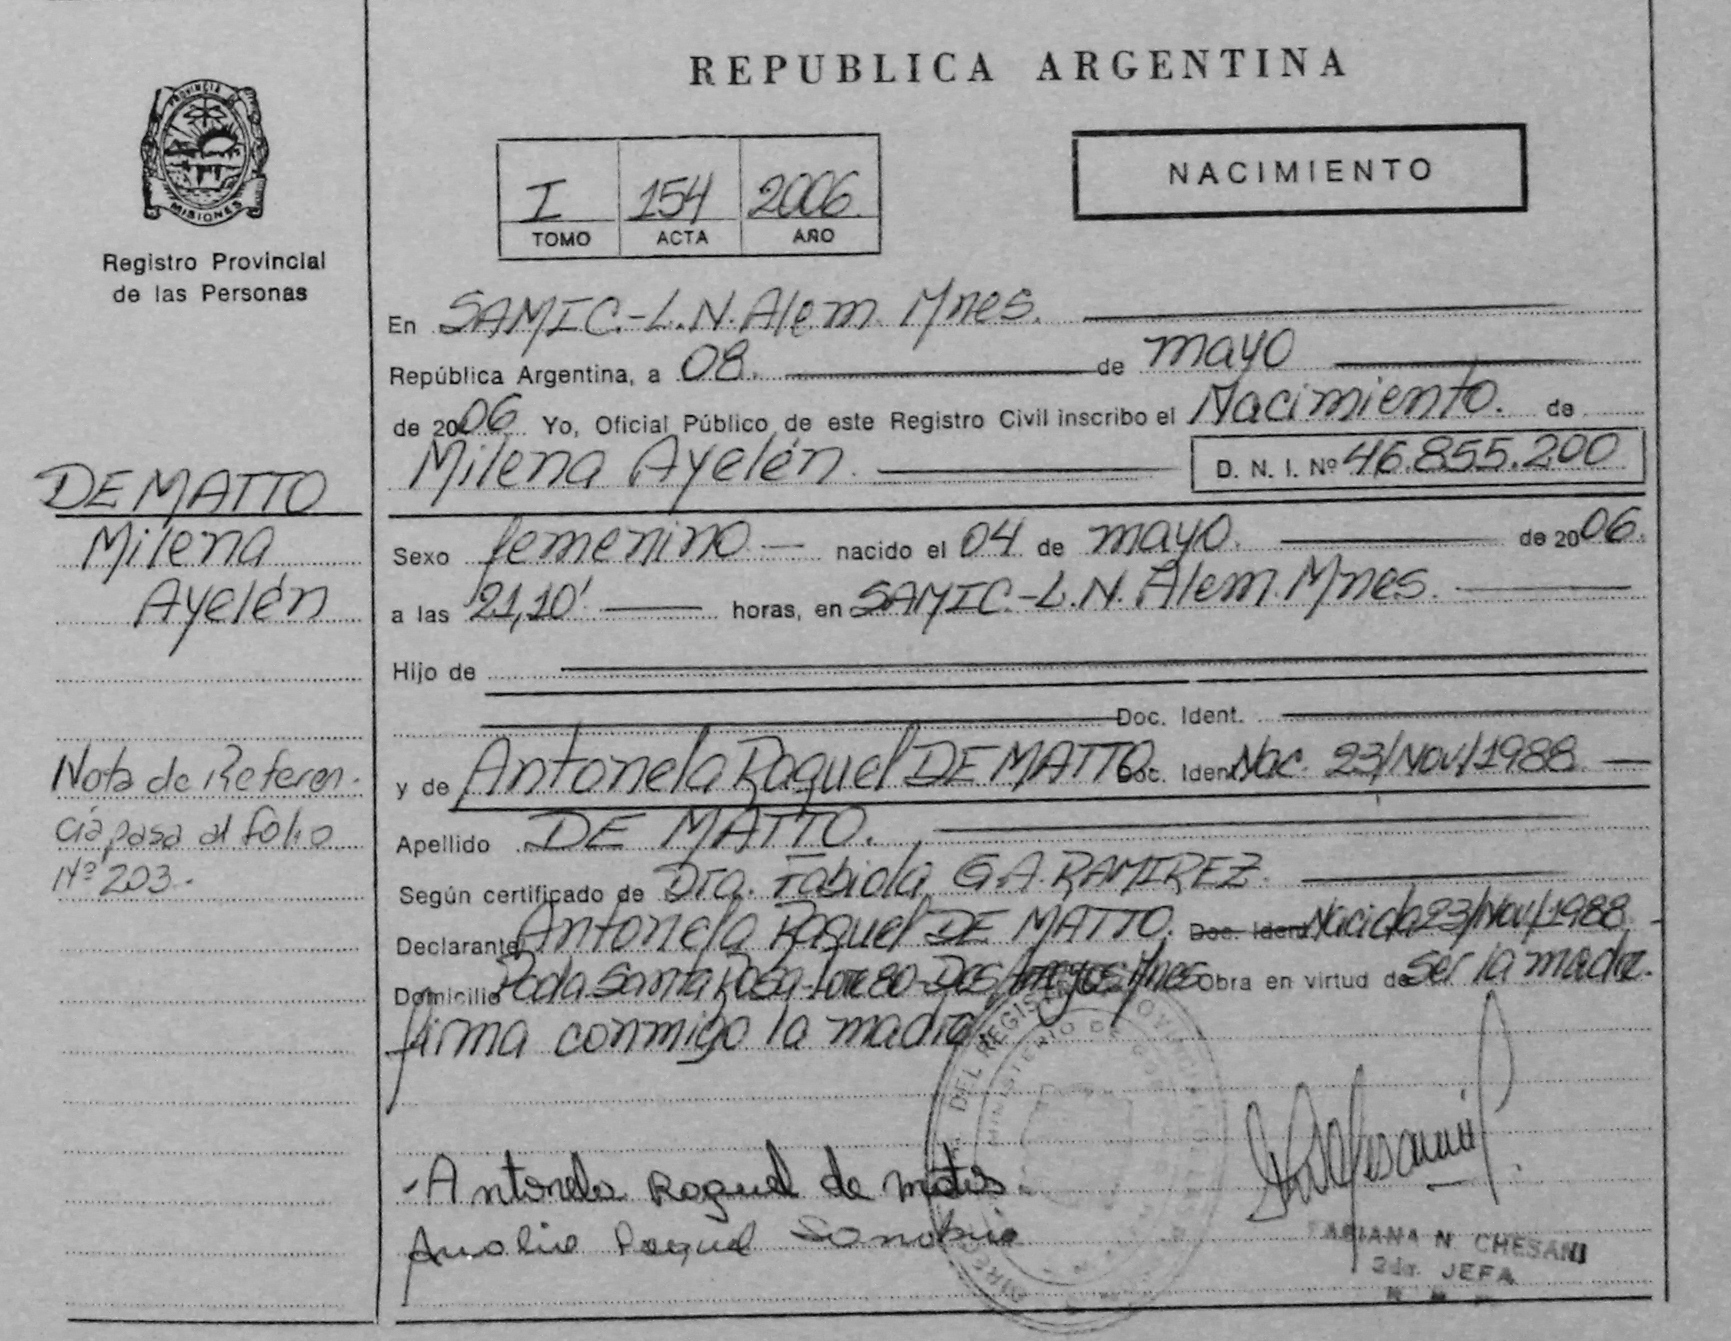 REPUBLICA ARGENTINA
PROVINCIA DE
MISIONES
Registro Provincial
de las Personas
I 154 2006
TOMO ACTA AÑO
NACIMIENTO
En SAMIC.-L.N.Alem. Mnes.
República Argentina, a 08. de mayo
de 2006 Yo, Oficial Público de este Registro Civil inscribo el Nacimiento. de
Milena Ayelén. D. N. I. Nº 46.855.200
DE MATTO
Milena
Ayelén
Sexo femenino nacido el 04 de mayo. de 2006.
a las 21,10' horas, en SAMIC.-L.N. Alem. Mnes.
Hijo de
Doc. Ident.
y de Antonela Raquel DE MATTO Doc. Ident Nac. 23/Nov/1988
Nota de Referen-
cia pasa al folio
Nº 203.-
Apellido DE MATTO.
Según certificado de Dra. Fabiola G.A. RAMIREZ.
Declarante Antonela Raquel DE MATTO. Doc. Ident Nacida 23/Nov/1988
Domicilio Santa Rosa-Lote 80-Dos Mnes Obra en virtud de ser la madre.
firma conmigo la madre.
DEL REGISTRO PROVINCIAL
MINISTERIO DE
-Antonela Raquel de
Raquel
FABIANA N. CHESANI
2da. JEFA